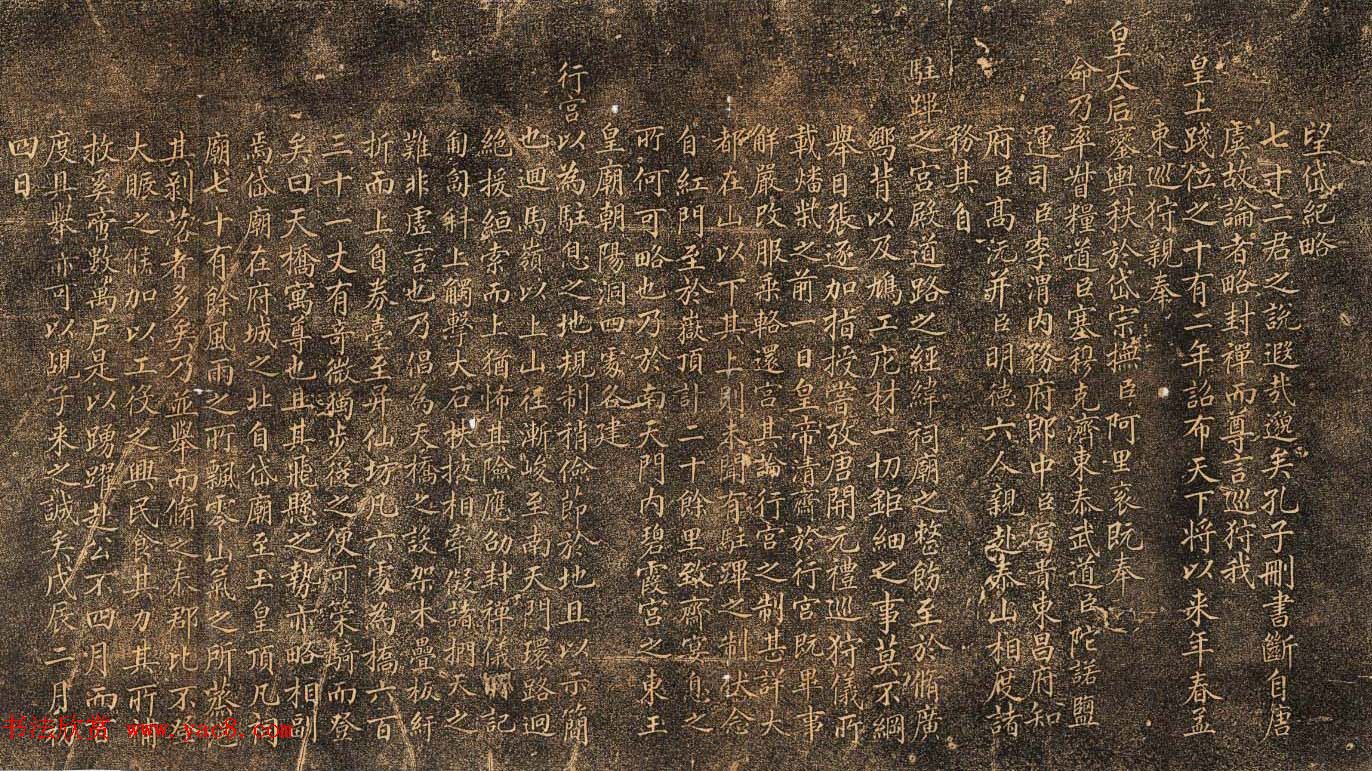 望岱紀略
七十二君之說遐哉邈矣孔子刪書斷自唐
虞故論者略封禪而尊言巡狩我
皇上踐位之十有二年詔布天下将以来年春孟
東巡狩親奉
皇太后鑾輿秩於岱宗撫臣阿里衮既奉
命乃率督糧道臣塞穆克濟東泰武道臣陀諾鹽
運司臣李渭内務府郎中臣富貴東昌府知
府臣高沅并臣明德六人親赴泰山相度諸
務其自
駐蹕之宫殿道路之經緯祠廟之整飭至於脩廣
嚮背以及鳩工庀材一切鉅細之事莫不綱
舉目張逐加指授嘗攷唐開元禮巡狩儀所
載燔柴之前一日皇帝清齋於行宫既畢事
解嚴改服乘輅還宫其論行宫之制甚詳大
都在山以下其上則未聞有駐蹕之制伏念
自紅門至於嶽頂計二十餘里致齋宴息之
所何可略也乃於南天門内碧霞宫之東玉
皇廟朝陽洞四處各建
行宫以為駐息之地規制稍儉節於地且以示簡
也迴馬嶺以上山徑漸峻至南天門環路迴
絕援絙索而上猶怖其險應劭封禪儀記
匍匐斜上觸擊大石扶掖相牽儗諸捫天之
難非虚言也乃倡為天橋之設架木疊板紆
折而上自券臺至昇仙坊凡六處為橋六百
三十一丈有奇微獨步從之便可策騎而登
矣曰天橋寓尊也且其飛懸之勢亦略相副
焉岱廟在府城之北自岱廟至玉皇頂凡祠
廟七十有餘風雨之所飄零山氣之所蒸
其剥落者多矣乃並舉而脩之泰郡比不
大賑之餘加以工役之興民食其力其所
救奚啻數萬户是以踴躍赴公不四月而百
度具舉亦可以覘子来之誠矣戊辰二月初
四日
书法欣赏 www.yac8.com